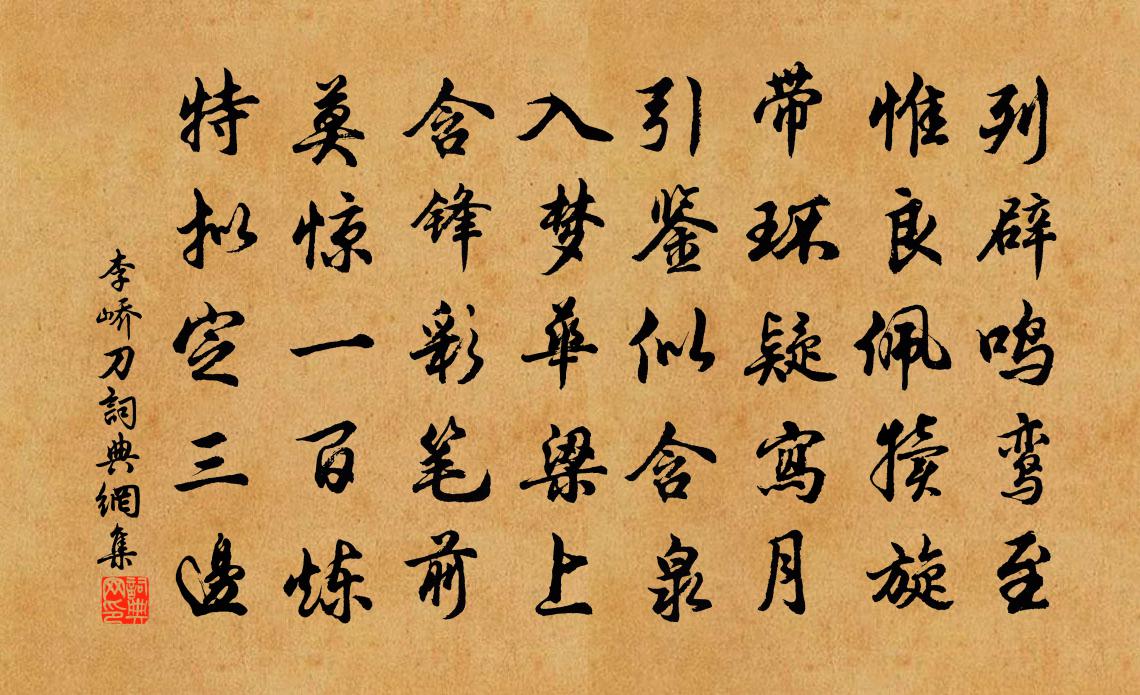 列辟鸣鸾至
惟良佩犊旋
带环疑写月
引鉴似含泉
入梦华梁上
含锋彩笔前
莫惊一百炼
特拟定三边
李峤刀詞典網集
詞典网印